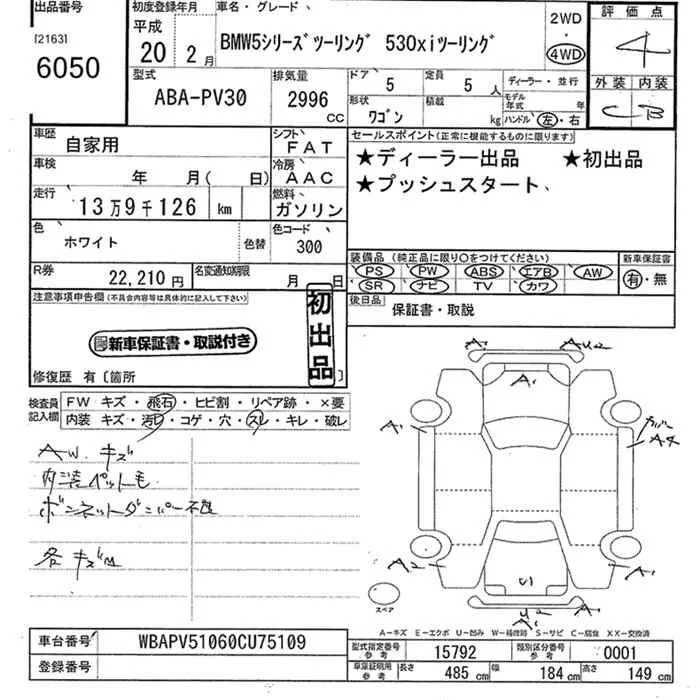 出品番号
[2163]
6050
初度登録年月
平成
20 2月
車名・グレード、
BMW5シリーズツーリング 530xiツーリング
2WD
・
4WD
評価点
4
外装 内装
C B
型式
ABA-PV30
排気量
2996
CC
ドア、
5
定員
5人
ディーラー・並行
形状
ワゴン
積載
kg
モデル年式 年
ハンドル 左・右
車歴 自家用
シフト、
FAT
車検 年 月( 日)
冷房、
AAC
走行、
13万9千126 km
燃料、
ガソリン
色、
ホワイト
色替
色コード、
300
セールスポイント(正常に機能するものに限ります)
★ディーラー出品 ★初出品
★プッシュスタート、
装備品(純正品に限り○をつけてください)
PS PW ABS エアB AW
SR ナビ TV カワ
新車保証書
有・無
R券 22,210円
名変通知期限 月 日
後日品
保証書・取説
注意事項申告欄(不具合内容等は具体的に記入して下さい)
初出品
新車保証書・取説付き
修復歴 有〔箇所 〕
検査員記入欄
FW キズ・飛石・ヒビ割・リペア跡・×要
内装 キズ・汚レ・コゲ・穴・スレ・キレ・破レ
A.W. キズ
内装ペット毛
ボンネットダンパー不良
各キズ凹
A1
AU2
A1
A1
カバー
A4
A2
A1
U1
U2
A
スペア
A−キズ E−エクボ U−凹み W−補修跡 S−サビ C−腐食 XX−交換済
車台番号 WBAPV51060CU75109
登録番号
型式指定番号
参考
15792
類別区分番号
参考
0001
車庫証明用
参考
長さ 485cm 幅 184cm 高さ 149cm